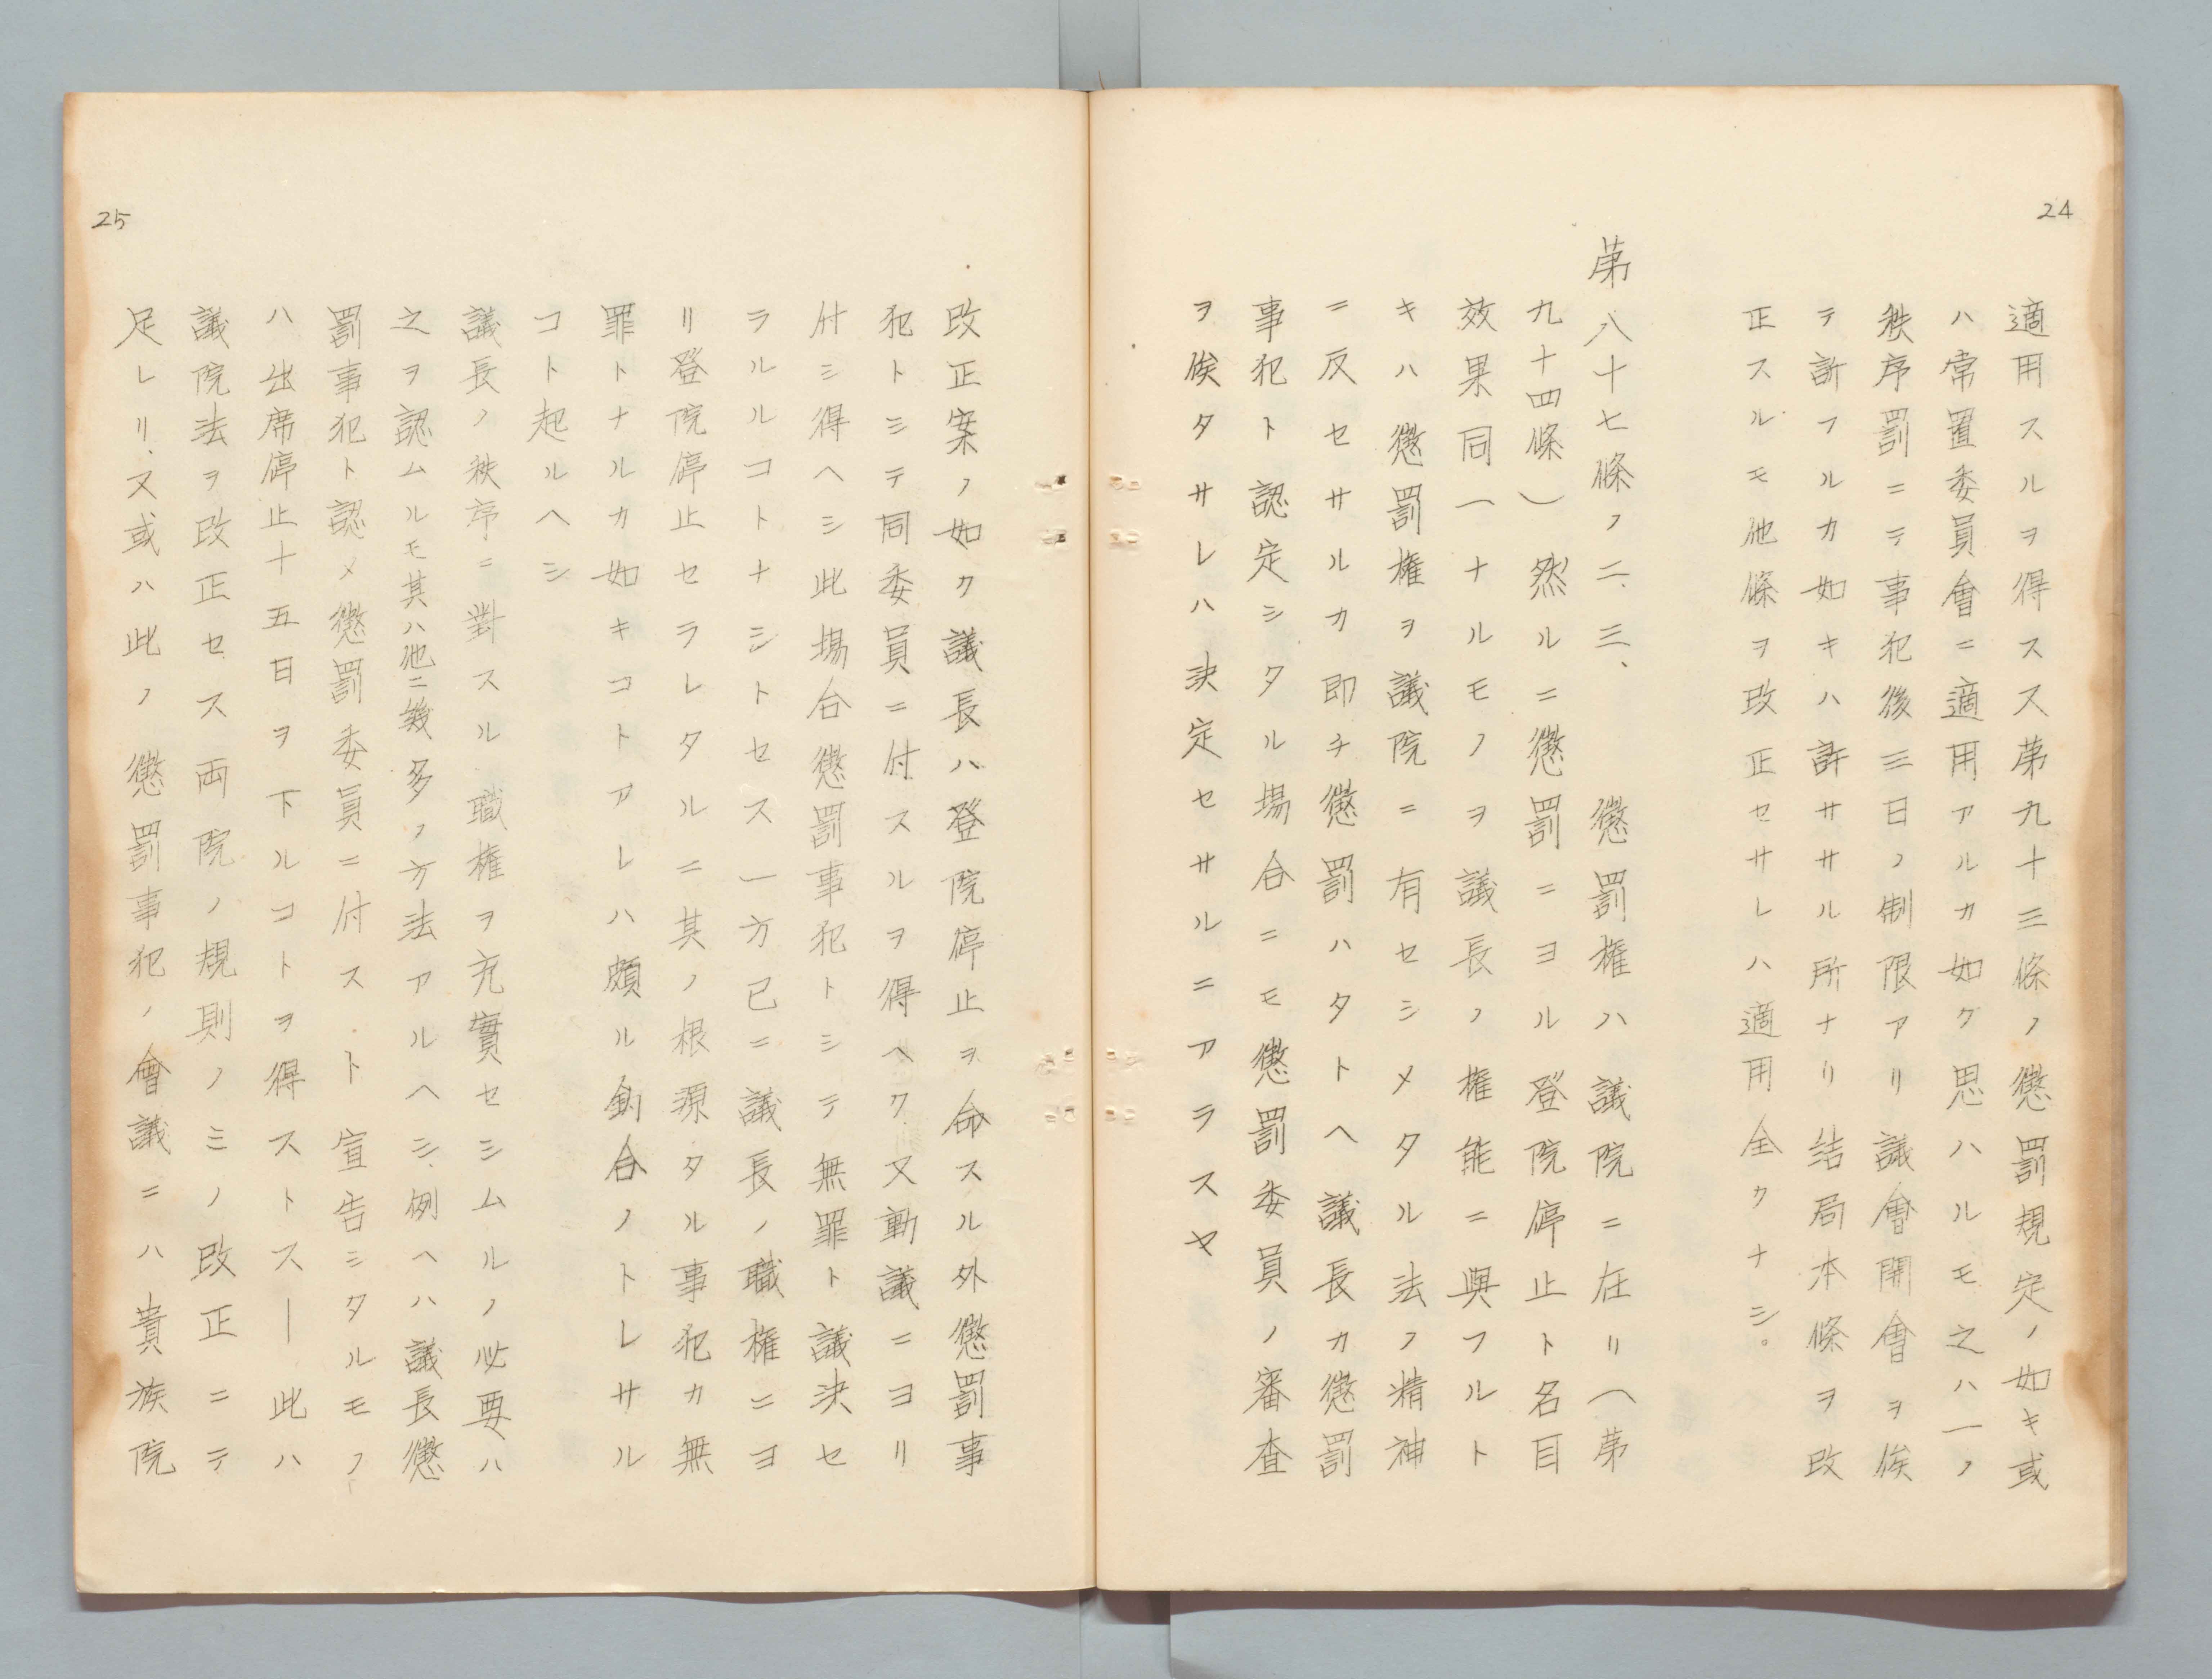 24
適用スルヲ得ススス第九十三條ノ懲罰規定ノ如キ或
ハ常置委員會ニ適用アルカ如ク思ハルモ之ハ一ノ
秩序罰ニテ事犯後三日ノ制限アリ議會開會ヲ俟
テ訴フルカ如キハ許ササル所ナリ結局本條ヲ改
正スルモ他條ヲ改正セサレハ適用全クナシ。
第八十七條ノ二、三、　懲罰権ハ議院ニ在リ（第
九十四條）然ルニ懲罰ニヨル登院停止ト名目
效果同一ナルモノヲ議長ノ権能ニ與フルト
キハ懲罰権ヲ議院ニ有セシメタル法ノ精神
ニ反セサルカ即チ懲罰ハタトヘ議長カ懲罰
事犯ト認定シタル場合ニモ懲罰委員ノ審査
ヲ俟タサレハ決定セサルニアラスヤ
25
改正案ノ如ク議長ハ登院停止ヲ命スル外懲罰事
犯トシテ同委員ニ付スルヲ得ヘク又動議ニヨリ
付シ得ヘシ此場合懲罰事犯トシテ無罪ト議決セ
ラルルコトナシトセス一方已ニ議長ノ職権ニヨ
リ登院停止セラレタルニ其ノ根源タル事犯カ無
罪トナルカ如キコトアレハ頗ル釣合ノトレサル
コト起ルヘシ
議長ノ秩序ニ對スル職権ヲ充實セシムルノ必要ハ
之ヲ認ムルモ其ハ他ニ幾多ノ方法アルヘシ、例ヘハ議長懲
罰事犯ト認メ懲罰委員ニ付ス、ト宣告シタルモノ
ハ出席停止十五日ヲ下ルコトヲ得ストス―此ハ
議院法ヲ改正セス両院ノ規則ノミノ改正ニテ
足レリ、又或ハ此ノ懲罰事犯ノ會議ニハ貴族院